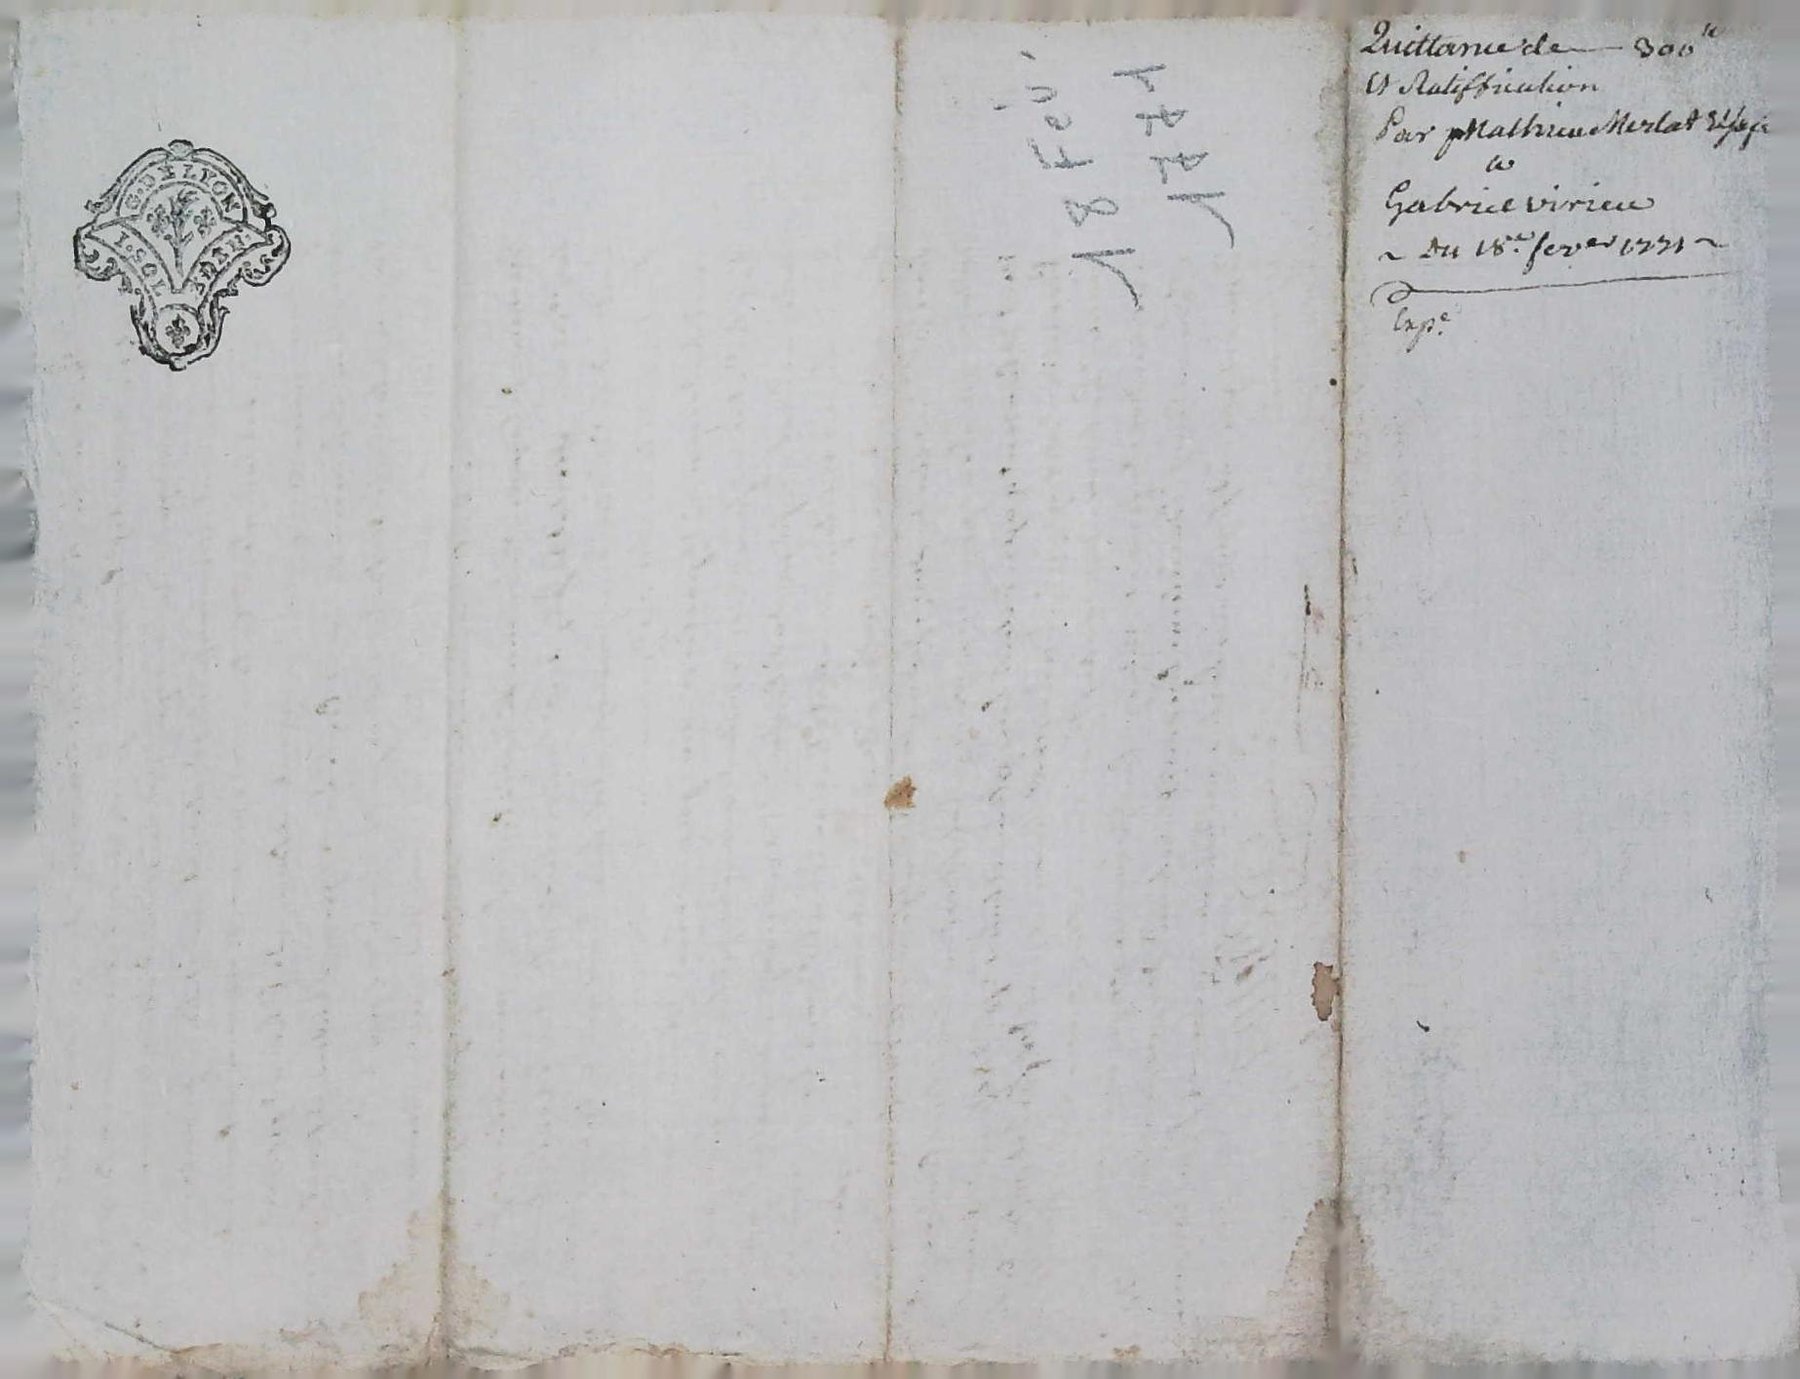 G. DE LYON
1. SOL
18 Fev.
1771
Quittance de — 300 ᵗᵗ
Et Ratiffication
Par Mathieu Merlat
a
Gabriel virieu
~ Du 18.e fever 1771 ~
Expe.